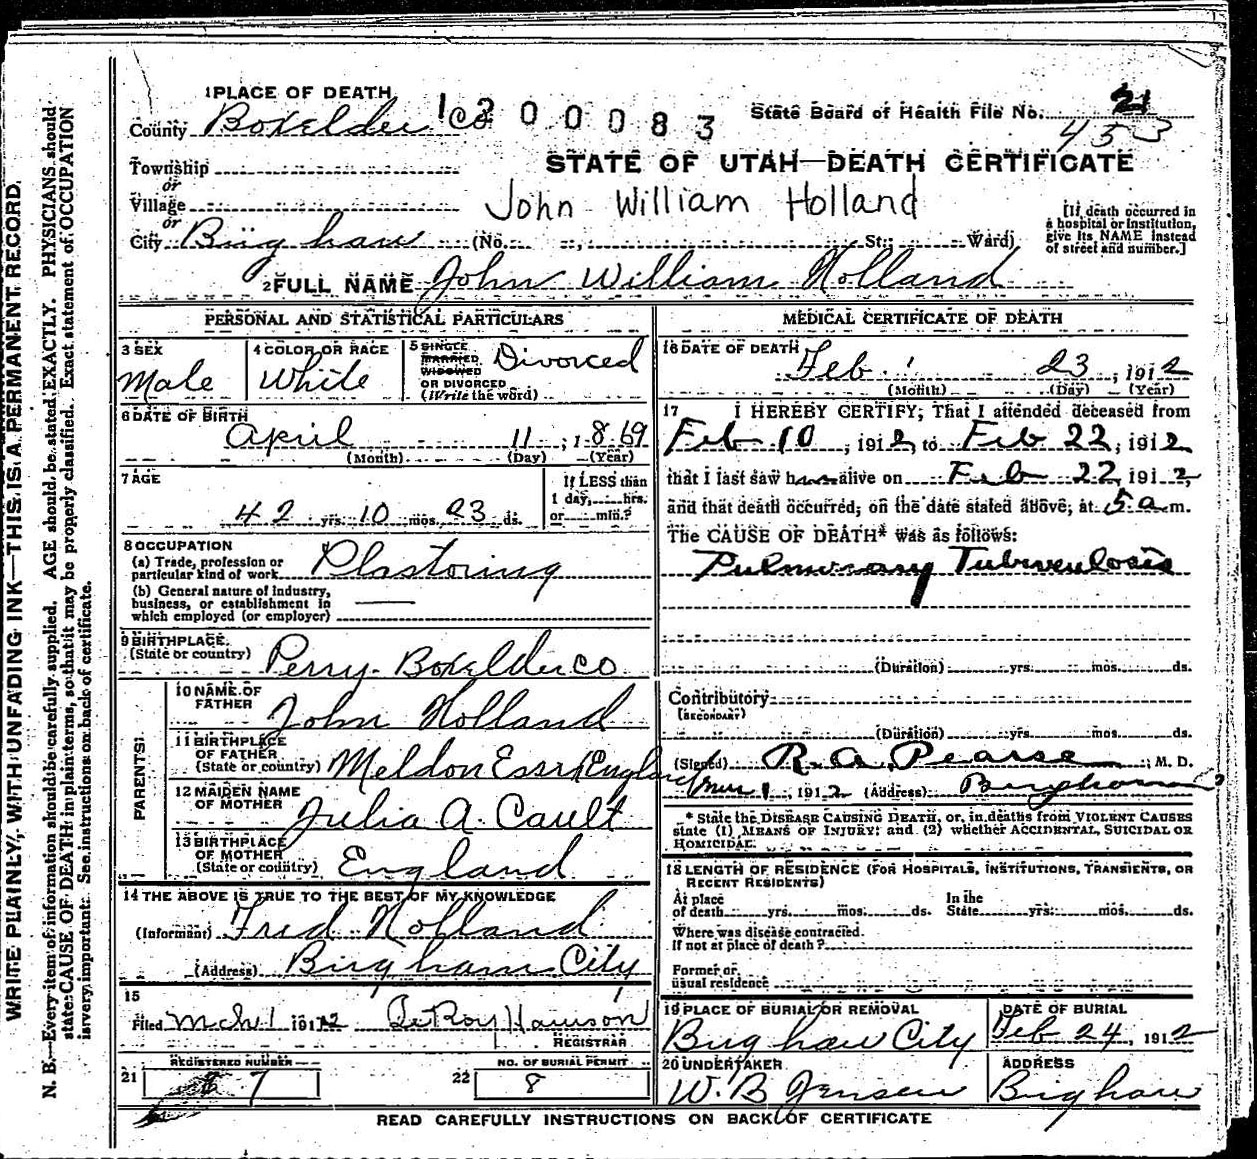 1 PLACE OF DEATH
County Boxelder Co
1200083
State Board of Health File No. 21
453
Township
or
Village
or
City Brigham (No. , St.; Ward)
STATE OF UTAH—DEATH CERTIFICATE
John William Holland
[If death occurred in a hospital or institution, give its NAME instead of street and number.]
2 FULL NAME John William Holland
PERSONAL AND STATISTICAL PARTICULARS
3 SEX Male
4 COLOR OR RACE White
5 SINGLE MARRIED WIDOWED OR DIVORCED (Write the word) Divorced
6 DATE OF BIRTH
April 11, 1869
(Month) (Day) (Year)
7 AGE
42 yrs. 10 mos. 23 ds.
If LESS than 1 day, hrs. or min.?
8 OCCUPATION
(a) Trade, profession or particular kind of work Plastoring
(b) General nature of industry, business, or establishment in which employed (or employer)
9 BIRTHPLACE
(State or country) Perry Boxelder co
PARENTS
10 NAME OF FATHER John Holland
11 BIRTHPLACE OF FATHER (State or country) Meldon Essex England
12 MAIDEN NAME OF MOTHER Julia A. Cault
13 BIRTHPLACE OF MOTHER (State or country) England
14 THE ABOVE IS TRUE TO THE BEST OF MY KNOWLEDGE
(Informant) Fred Holland
(Address) Brigham City
15
Filed Mch 1 1912
REGISTRAR
REGISTERED NUMBER
21 7
NO. OF BURIAL PERMIT
22 8
MEDICAL CERTIFICATE OF DEATH
16 DATE OF DEATH
Feb. 23, 1912
(Month) (Day) (Year)
17 I HEREBY CERTIFY, That I attended deceased from
Feb 10, 1912, to Feb 22, 1912
that I last saw him alive on Feb 22, 1912,
and that death occurred, on the date stated above, at 5 a m.
The CAUSE OF DEATH* was as follows:
Pulmonary Tuberculosis
(Duration) yrs. mos. ds.
Contributory
(SECONDARY)
(Duration) yrs. mos. ds.
(Signed) R. A. Pearse, M. D.
Mar 1, 1912 (Address) Brigham
* State the DISEASE CAUSING DEATH, or, in deaths from VIOLENT CAUSES
state (1) MEANS OF INJURY; and (2) whether ACCIDENTAL, SUICIDAL OR
HOMICIDAL.
18 LENGTH OF RESIDENCE (FOR HOSPITALS, INSTITUTIONS, TRANSIENTS, OR
RECENT RESIDENTS)
At place of death yrs. mos. ds. In the State yrs. mos. ds.
Where was disease contracted.
If not at place of death?
Former or
usual residence
19 PLACE OF BURIAL OR REMOVAL
Brigham City
DATE OF BURIAL
Feb 24, 1912
20 UNDERTAKER
W. B Jensen
ADDRESS
Brigham
READ CAREFULLY INSTRUCTIONS ON BACK OF CERTIFICATE
WRITE PLAINLY, WITH UNFADING INK—THIS IS A PERMANENT RECORD.
N. B.—Every item of information should be carefully supplied. AGE should be stated EXACTLY. PHYSICIANS should
state CAUSE OF DEATH in plain terms, so that it may be properly classified. Exact statement of OCCUPATION
is very important. See instructions on back of certificate.